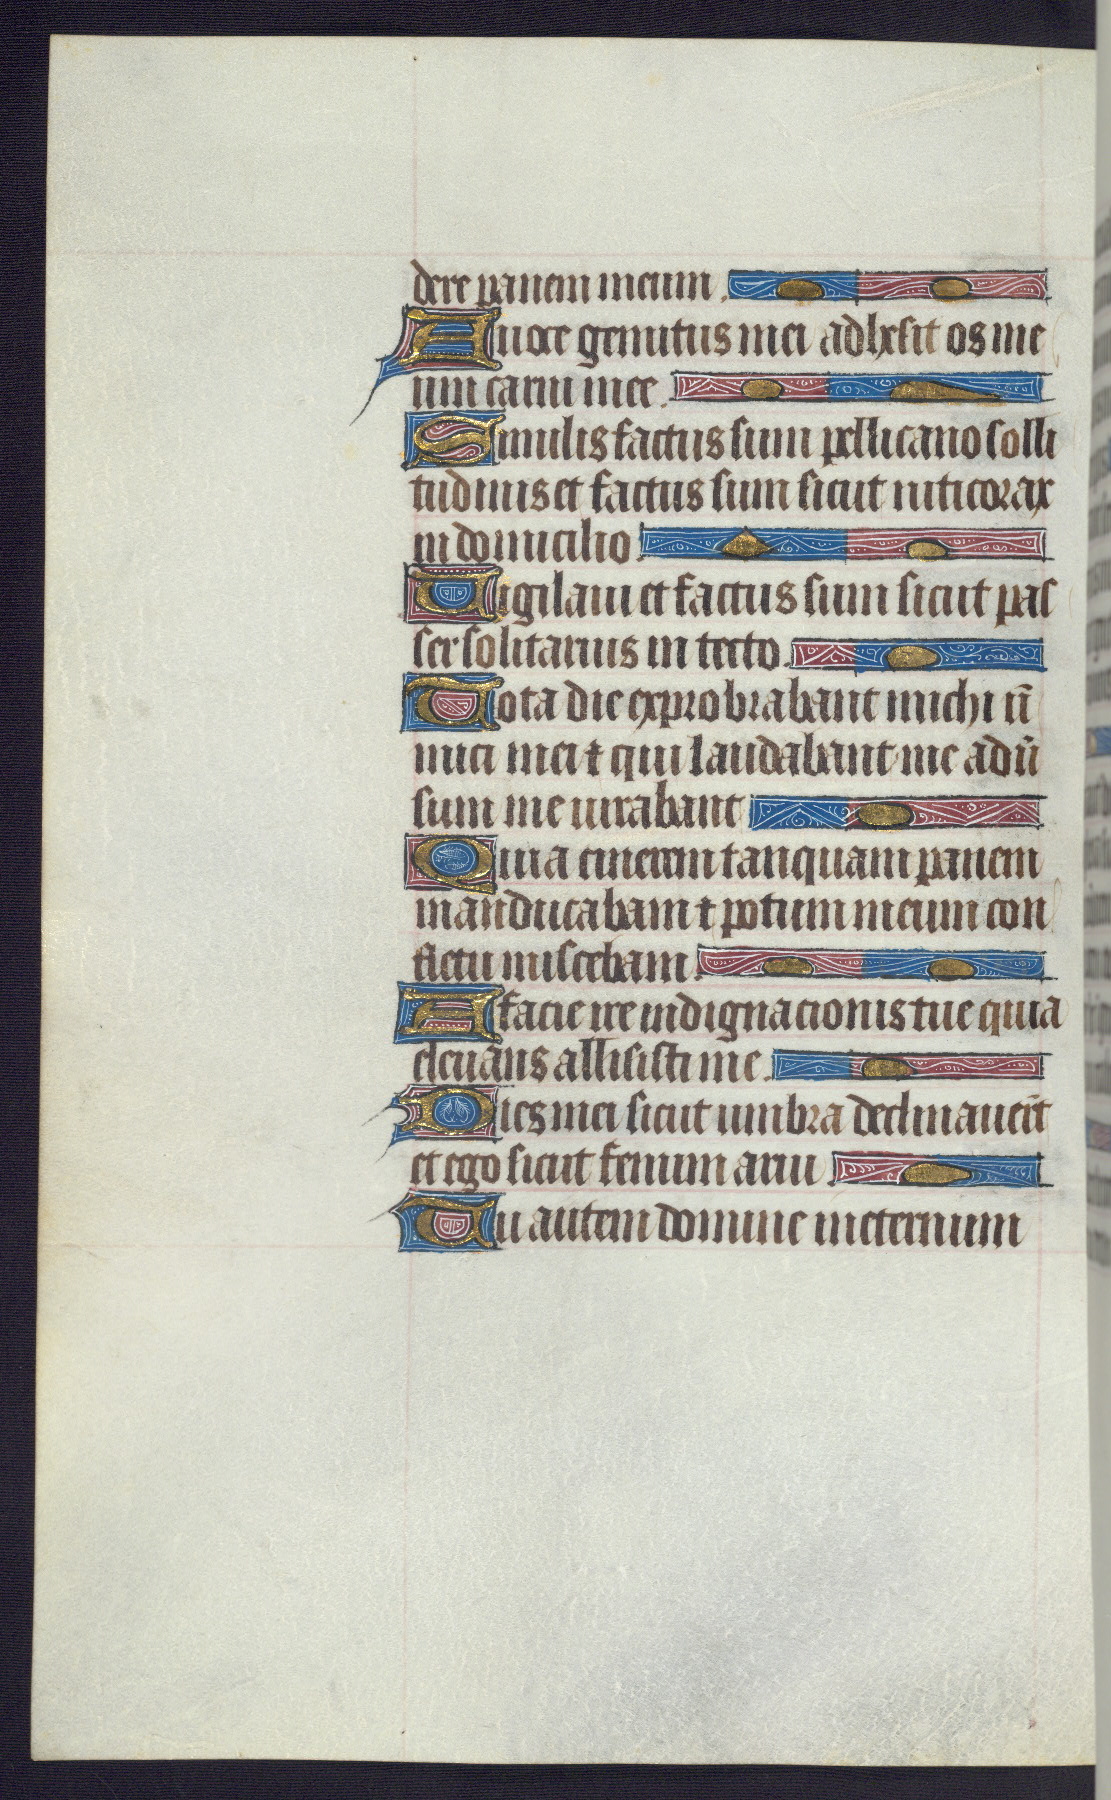 dere panem meum.
A uoce gemitus mei adhesit os me
um carni mee.
Similis factus sum pellicano solli
tudinis et factus sum sicut niticorax
in domicilio
Uigilaui et factus sum sicut pas
ser solitarius in tecto.
Tota die exprobrabant michi iī
mici mei ⁊ qui laudabant me adū
sum me iurabant
Quia cinerem tanquam panem
manducabam ⁊ potum meum con
fletu miscebam.
A facie ire indignacionis tue quia
eleuans allisisti me.
Dies mei sicut umbra declinauer̄t
et ego sicut fenum arui.
Tu autem domine ineternum